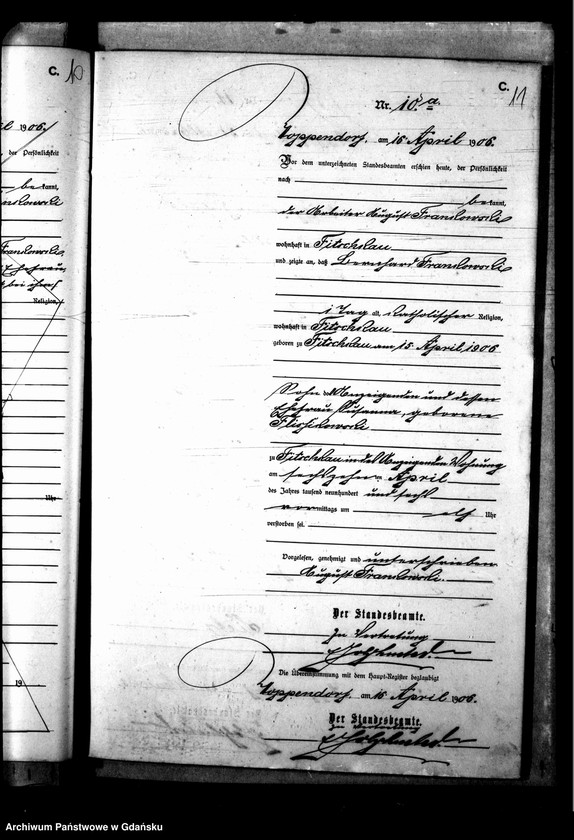 C. 10
C. 11
il 1906.
der Persönlichkeit
be kannt,
bei ihres
Religion,
Uhr
19
Nr. 10.a.
Zoppendorf, am 16 April 1906.
Vor dem unterzeichneten Standesbeamten erschien heute, der Persönlichkeit
nach
be kannt,
der Arbeiter August
wohnhaft in Fitschkau
und zeigte an, daß Bernhard
1 Tag alt, katholischer Religion,
wohnhaft in Fitschkau
geboren zu Fitschkau am 15. April 1906
Sohn des Anzeigenden und dessen
Ehefrau Susanna, geborene
zu Fitschkau in des Anzeigenden Wohnung
am sechszehnten April
des Jahres tausend neunhundert und sechs
vormittags um elf Uhr
verstorben sei.
Vorgelesen, genehmigt und unterschrieben
August
Der Standesbeamte.
In Vertretung
Die Übereinstimmung mit dem Haupt-Register beglaubigt
Zoppendorf, am 16 April 1906.
Der Standesbeamte.
In Vertretung
Archiwum Państwowe w Gdańsku